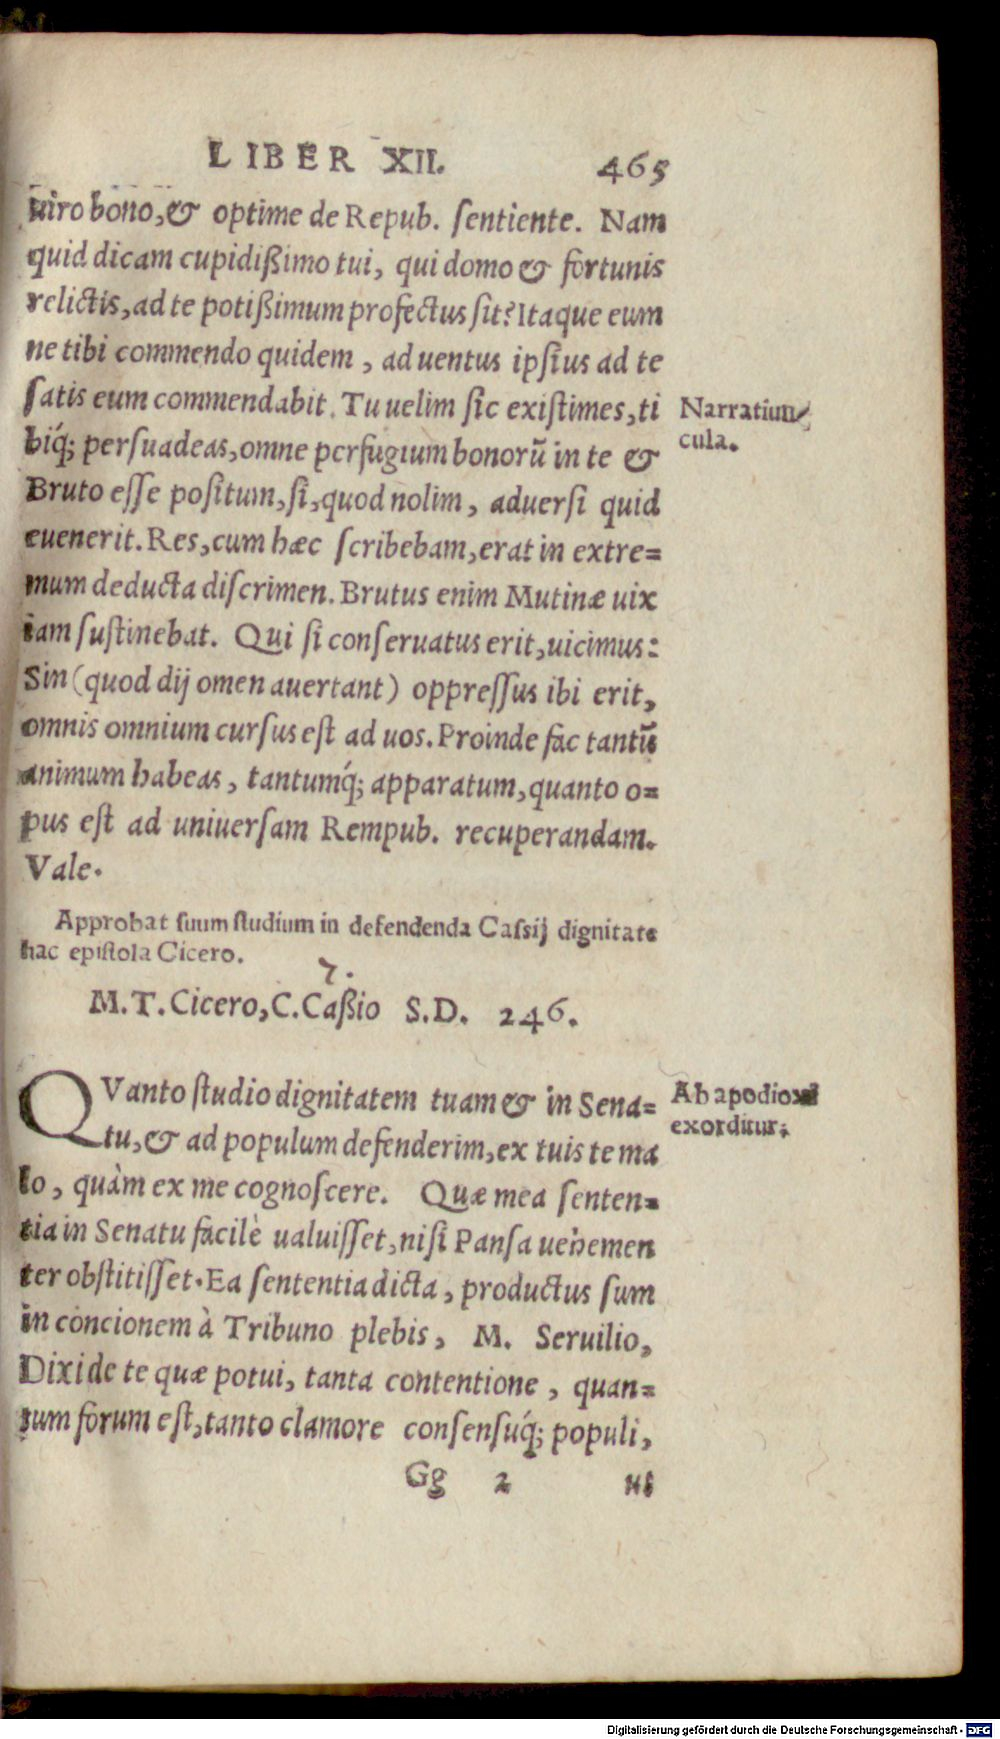 LIBER XII. 465
uiro bono, & optime de Repub. sentiente. Nam
quid dicam cupidißimo tui, qui domo & fortunis
relictis, ad te potißimum profectus sit? Itaque eum
ne tibi commendo quidem, aduentus ipsius ad te
satis eum commendabit. Tu uelim sic existimes, ti
biq́; persuadeas, omne perfugium bonorũ in te &
Bruto esse positum, si, quod nolim, aduersi quid
euenerit. Res, cum hæc scribebam, erat in extre=
mum deducta discrimen. Brutus enim Mutinæ uix
iam sustinebat. Qui si conseruatus erit, uicimus:
Sin (quod dij omen auertant) oppressus ibi erit,
omnis omnium cursus est ad uos. Proinde fac tantũ
animum habeas, tantumq́; apparatum, quanto o=
pus est ad uniuersam Rempub. recuperandam.
Vale.
Narratiun
cula.
Approbat suum studium in defendenda Cassij dignitate
hac epistola Cicero.
7.
M. T. Cicero, C. Caßio S. D. 246.
QVanto studio dignitatem tuam & in Sena=
tu, & ad populum defenderim, ex tuis te ma
lo, quàm ex me cognoscere. Quæ mea senten=
tia in Senatu facilè ualuisset, nisi Pansa uehemen
ter obstitisset. Ea sententia dicta, productus sum
in concionem à Tribuno plebis, M. Seruilio,
Dixi de te quæ potui, tanta contentione, quan=
tum forum est, tanto clamore consensuq́; populi,
Ab apodioxi
exorditur.
Gg 2 ut
Digitalisierung gefördert durch die Deutsche Forschungsgemeinschaft - DFG